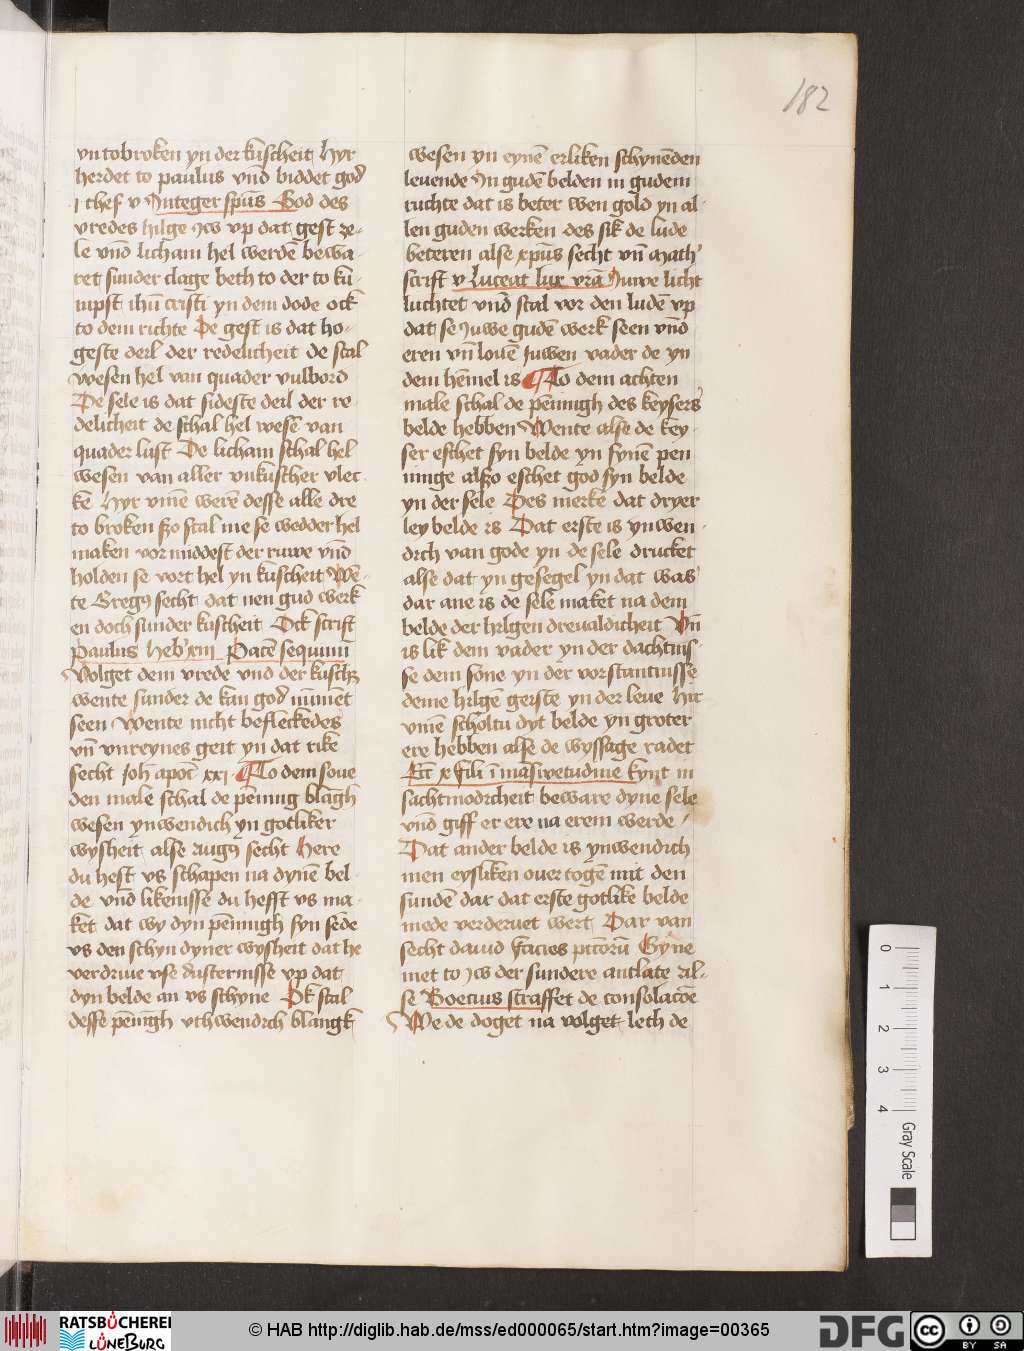 182
vntobroken yn der kūscheit Hyr
herdet to paulus vnd biddet god
i thes v Integer spūs God des
vredes hilge Jw vp dat gest ze-
le vnd licham hel werdē bewa-
ret sunder clage beth to der to kū-
mpst ihū cristi yn dem dode ock
to dem richte De gest is dat ho-
geste deil der redelicheit de scal
wesen hel van quader vulbord
De sele is dat sideste deil der re-
delicheit de schal hel wesē van
quader lust De licham schal hel
wesen van aller vnkūscher vlec-
kē Hyr vmē werē desse alle dre
to broken szo scal me se wedder hel
maken vormiddest der ruwe vnd
holden se vort hel yn kūscheit Wē-
te Gregꝰ secht dat nen gud werk
en doch sunder kūscheit Ock scrift
Paulus heb' xiii Pacē sequimi
Volget dem vrede vnd der kūsch
wente sunder de kan god nūmet
seen Wente nicht befleckedes
vn̄ vnreynes geit yn dat rike
secht Joh apoc xxi To dem soue
den male schal de pēning blāgh
wesen ynwendich yn gotliker
wysheit alse augꝰ secht Here
du hest vs schapen na dynē bel-
de vnd likenisse du hefft vs ma-
ket dat wy dyn pēnigh syn sēde
vs den schyn dyner wysheit dat he
verdriue vse dusternisse vp dat
dyn belde an vs schyne Ok scal
desse pēnīgh vthwendich blangk
wesen yn eynē erliken schynēden
leuende In gudē belden in gudem
ruchte dat is beter wen gold yn al-
len guden werken des sik de lude
beteren alse xpūs secht vn̄ Math'
scrift v Luceat lux vrā Juwe licht
luchtet vnd scal vor den ludē vp
dat se Juwe gudē werk seen vnd
eren vn̄ louē Juwen vader de yn
dem hēmel is To dem achten
male schal de pēningh des keysers
belde hebben Wente alse de key-
ser eschet syn belde yn synē pen
ninge alszo eschet god syn belde
yn der sele Des merkē dat dryer
ley belde is Dat erste is ynwen-
dich van gode yn de sele drucket
alse dat yn gesegel yn dat was
dar ane is de sele maket na dem
belde der hilgen dreualdicheit Vn̄
is lik dem vader yn der dachtnis-
se dem sone yn der vorstantnisse
deme hilgē geiste yn der leue Hir
vmē scholtu dyt belde yn groter
ere hebben alse de wyssage radet
Ecc x fili ī māswetudine kynt in
sachtmodicheit beware dyne sele
vnd giff er ere na erem werde
Dat ander belde is ynwendich
men eysliken ouer togē mit den
sundē dar dat erste gotlike belde
mede verderuet wert Dar van
secht dauid Facies pctorū Gyne
met to Jw der sundere antlate Al-
se Boecius straffet de consolacōe
We de doget na volget leth de
0 1 2 3 4 Gray Scale
RATSBÜCHEREI LÜNEBURG
© HAB http://diglib.hab.de/mss/ed000065/start.htm?image=00365
DFG
cc BY SA